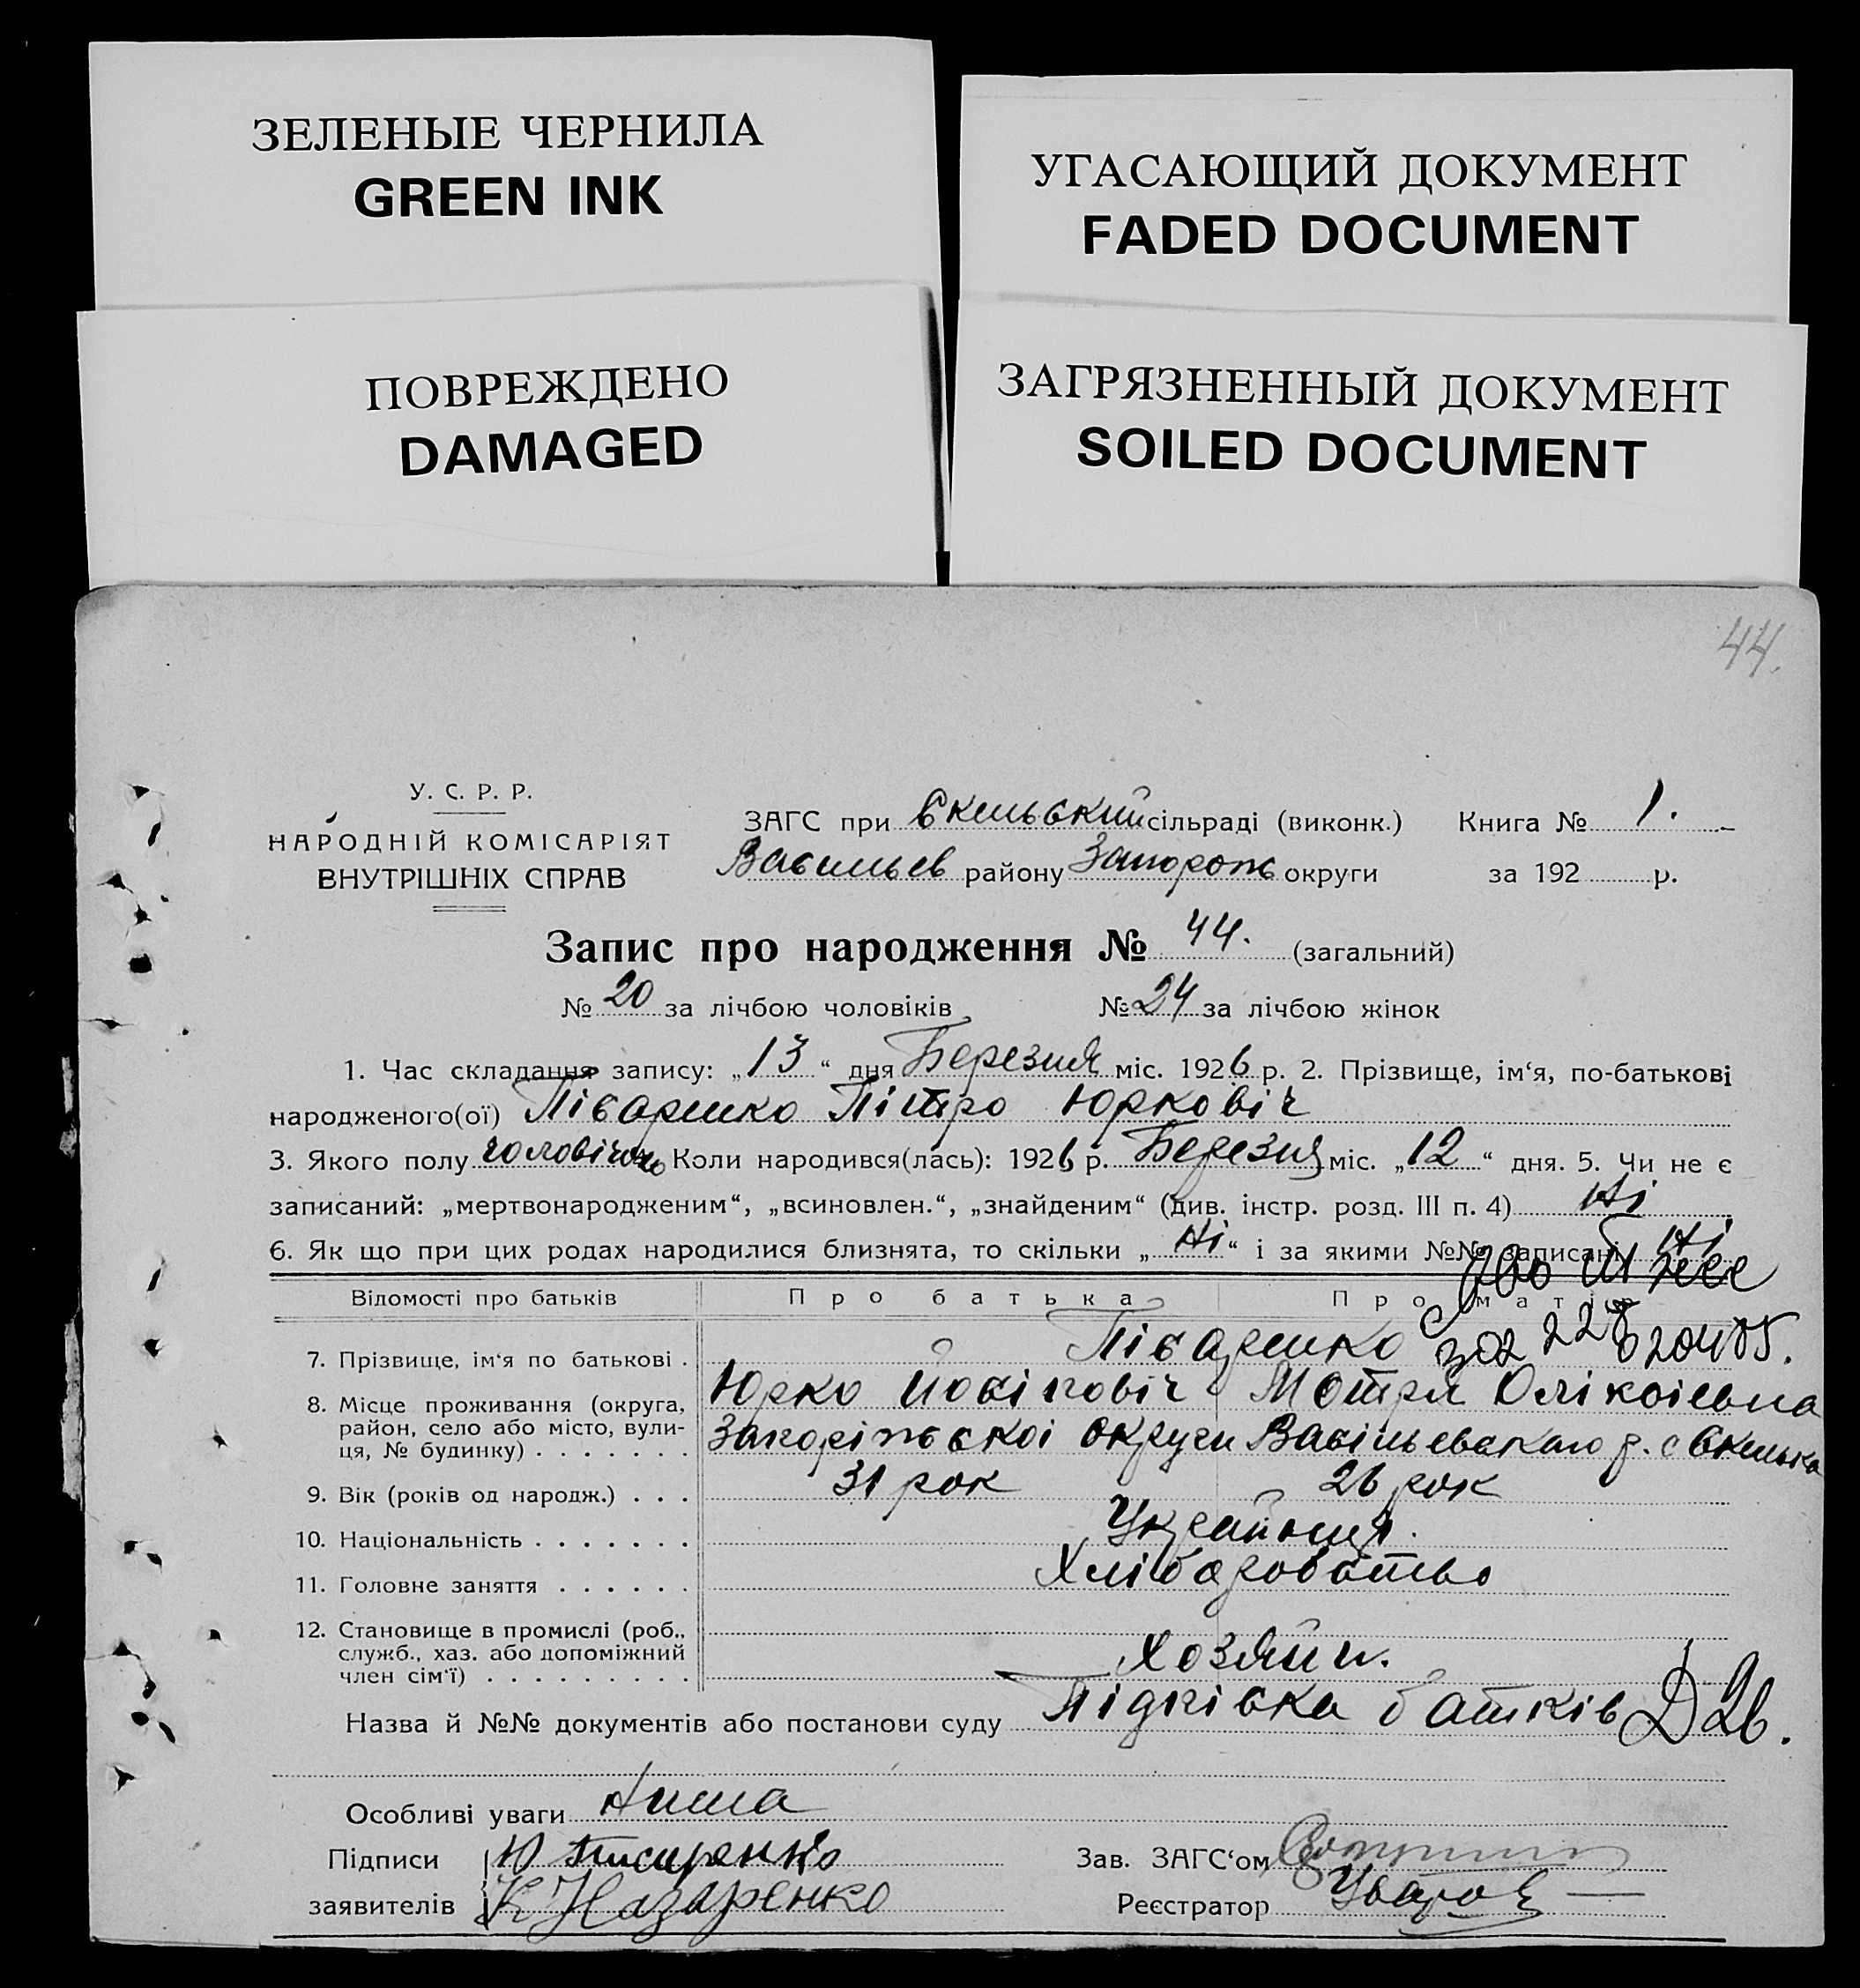 ЗЕЛЕНЫЕ ЧЕРНИЛА
GREEN INK
УГАСАЮЩИЙ ДОКУМЕНТ
FADED DOCUMENT
ПОВРЕЖДЕНО
DAMAGED
ЗАГРЯЗНЕННЫЙ ДОКУМЕНТ
SOILED DOCUMENT
44.
У. С. Р. Р.
НАРОДНІЙ КОМІСАРІЯТ
ВНУТРІШНІХ СПРАВ
ЗАГС при Скельский сільраді (виконк.) Книга № 1.
Васильев району Запорож округи за 192 р.
Запис про народження № 44. (загальний)
№ 20 за лічбою чоловіків № 24 за лічбою жінок
1. Час складання запису: „13“ дня Березня міс. 1926 р. 2. Прізвище, ім‘я, по-батькові
народженого(ої) Пісаренко Пітро Юрковіч
3. Якого полу Коли народився(лась): 1926 р. Березня міс. „12“ дня. 5. Чи не є
записаний: „мертвонародженим“, „всиновлен.“, „знайденим“ (див. інстр. розд. III п. 4) Ні
6. Як що при цих родах народилися близнята, то скільки „Ні“ і за якими №№ записані Ні
Відомості про батьків Про батька Про матір
7. Прізвище, ім‘я по батькові . Пісаренко
Юрко Йосіповіч Мотря
8. Місце проживання (округа,
район, село або місто, вули-
ця, № будинку) . . . . . . . Запоріжської округи Васільевскаго р. с Скелька
9. Вік (років од народж.) . . . 31 рок 26 рок
10. Національність . . . . . . .
11. Головне заняття . . . . . . Хліборобство
12. Становище в промислі (роб.,
служб., хаз. або допоміжний
член сім‘ї) . . . . . . . . . Хозяйн.
Назва й №№ документів або постанови суду Підпіска батків
Особливі уваги Нима
Підписи Ю Писаренко Зав. ЗАГС‘ом
заявителів К Назаренко Реєстратор Уваров